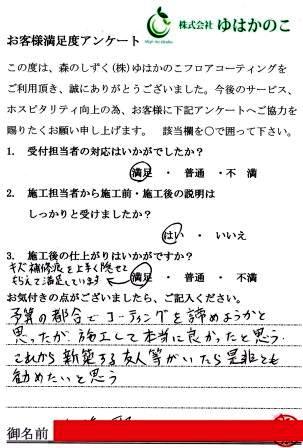 株式会社 ゆはかのこ
お客様満足度アンケート
この度は、森のしずく(株)ゆはかのこフロアコーティングを
ご利用頂き、誠にありがとうございました。今後のサービス、
ホスピタリティ向上の為、お客様に下記アンケートへご協力を
賜りたくお願い申し上げます。 該当欄を○で囲って下さい。
1. 受付担当者の対応はいかがでしたか?
満足 ・ 普通 ・ 不満
2. 施工担当者から施工前・施工後の説明は
しっかりと受けましたか?
はい ・ いいえ
3. 施工後の仕上がりはいかがですか?
キズ補修痕を上手く隠せて
もらえて満足しています
満足 ・ 普通 ・ 不満
お気付きの点がございましたら、ご記入ください。
予算の都合でコーティングを諦めようかと
思ったが、施工して本当に良かったと思う。
これから新築する友人等がいたら是非とも
勧めたいと思う
御名前